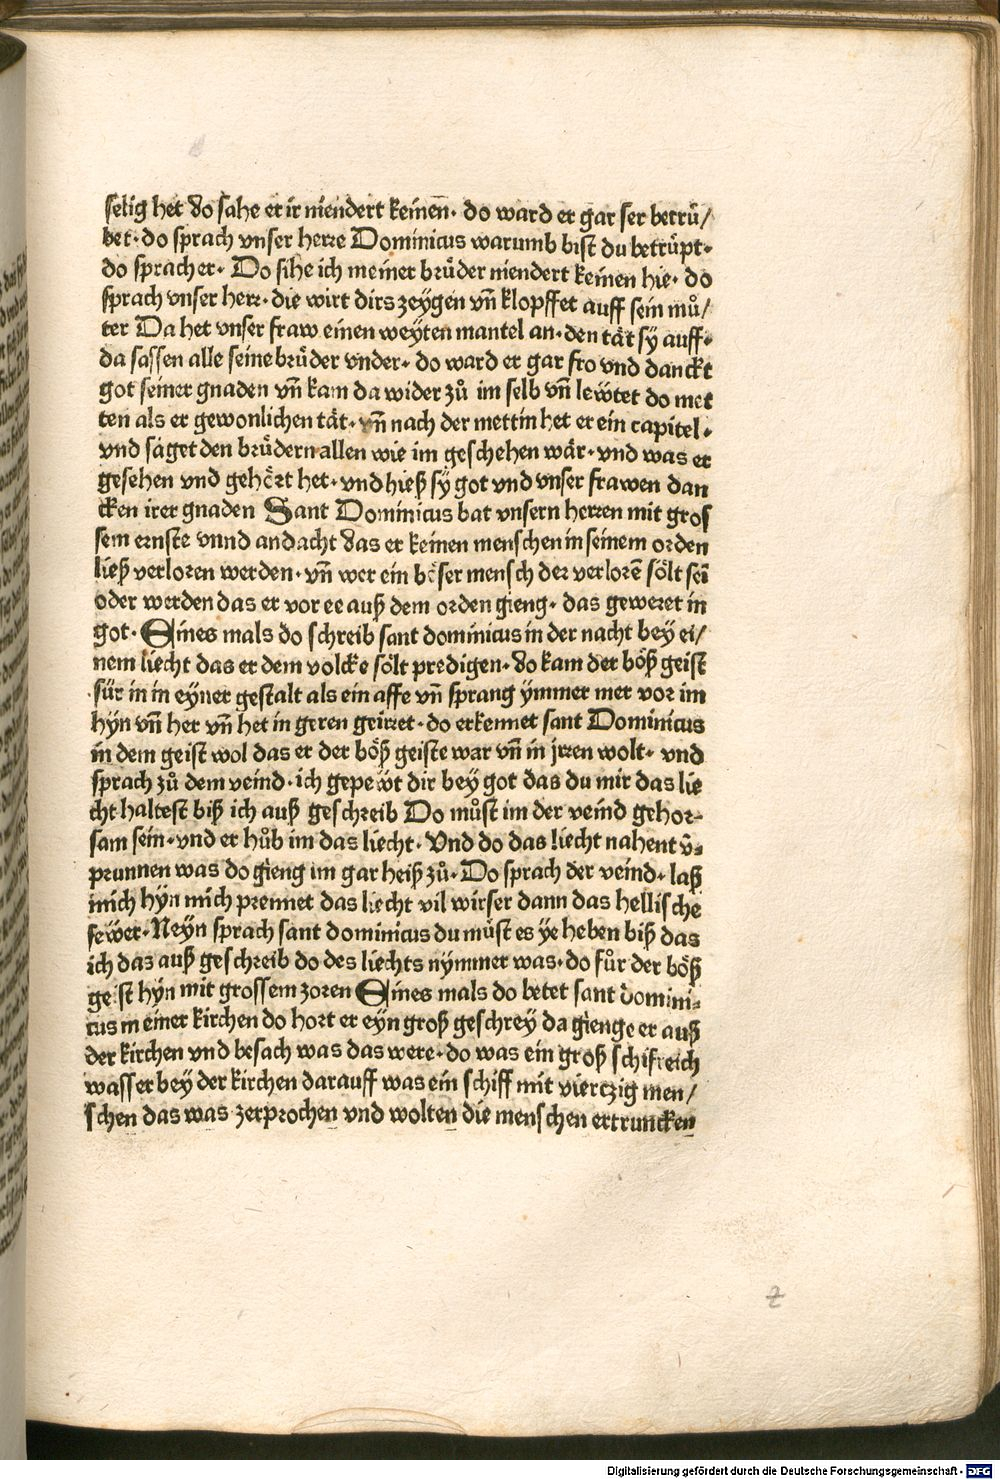 selig het do sahe er ir niendert keinen̄· do ward er gar ser betrü/
bet· do sprach vnser herre Dominicus warumb bist du betrüpt·
do sprach er· Do sihe ich meiner brüder niendert keinen hie· do
sprach vnser herr· die wirt dirs zeÿgen vn̄ klopffet auff sein mů/
ter Da het vnser fraw einen weÿten mantel an· den tät sy auff·
da sassen alle seine brüder vnder· do ward er gar fro vnd danckt
got seiner gnaden vn̄ kam da wider zů im selb vn̄ lewtet do met
ten als er gewonlichen tät· vn̄ nach der mettin het er ein capitel·
vnd saget den brüdern allen wie im geschehen wär· vnd was er
gesehen vnd gehört het· vnd hieß sÿ got vnd vnser frawen dan
cken irer gnaden Sant Dominicus bat vnsern herren mit gros
sem ernste vnnd andacht das er keinen menschen in seinem orden
ließ verloren werden· vn̄ wer ein böser mensch der verlorē sölt sei
oder werden das er vor ee auß dem orden gieng· das geweret in
got· Eines mals do schreib sant dominicus in der nacht bey ei/
nem liecht das er dem volcke sölt predigen· do kam der böß geist
für in in eyner gestalt als ein affe vn̄ sprang ÿmmer mer vor im
hÿn vn̄ her vn̄ het in geren geirret· do erkennet sant Dominicus
in dem geist wol das er der böß geiste war vn̄ in jrren wolt· vnd
sprach zů dem veind· ich gepewt dir bey got das du mir das lie
cht haltest biß ich auß geschreib Do můst im der veind gehor-
sam sein· vnd er hůb im das liecht· Vnd do das liecht nahent v̄-
prunnen was do gieng im gar heiß zů· Do sprach der veind· laß
mich hÿn mich prennet das liecht vil wirser dann das hellische
fewer· Neÿn sprach sant dominicus du můst es ÿe heben biß das
ich das auß geschreib do des liechts nÿmmer was· do fůr der böß
geist hÿn mit grossem zoren Eines mals do betet sant domini-
cus in einer kirchen do hort er eÿn groß geschreÿ da gienge er auß
der kirchen vnd besach was das were· do was ein groß schifreich
wasser bey der kirchen darauff was ein schiff mit viertzig men/
schen das was zerprochen vnd wolten die menschen ertruncken
z
Digitalisierung gefördert durch die Deutsche Forschungsgemeinschaft - DFG